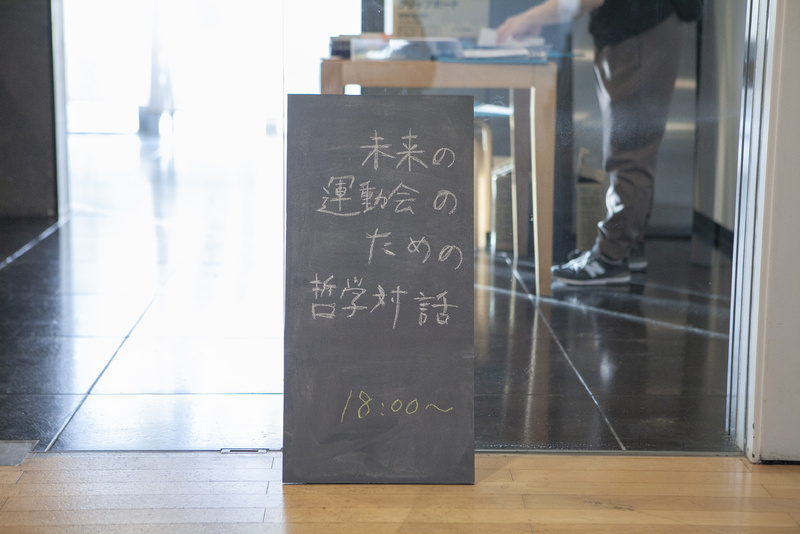 未来の
運動会の
ための
哲学対話
18:00〜